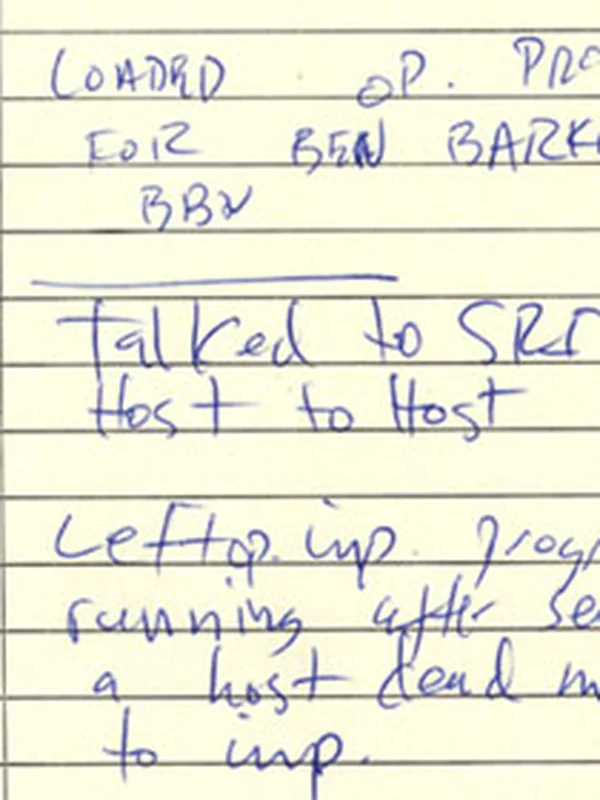 LOADED OP. PRO
FOR BEN BARK
BBN
Talked to SRI
Host to Host
Left op. imp. progr
running after se
a host dead m
to imp.